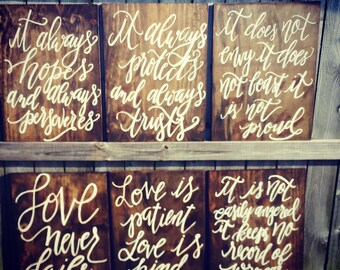 it always
hopes
and always
perseveres
it always
protects
and always
trusts
it does not
envy it does
not boast it
is not
proud
Love
never
fails
Love is
patient
Love is
kind
It is not
easily angered
it keeps no
record of